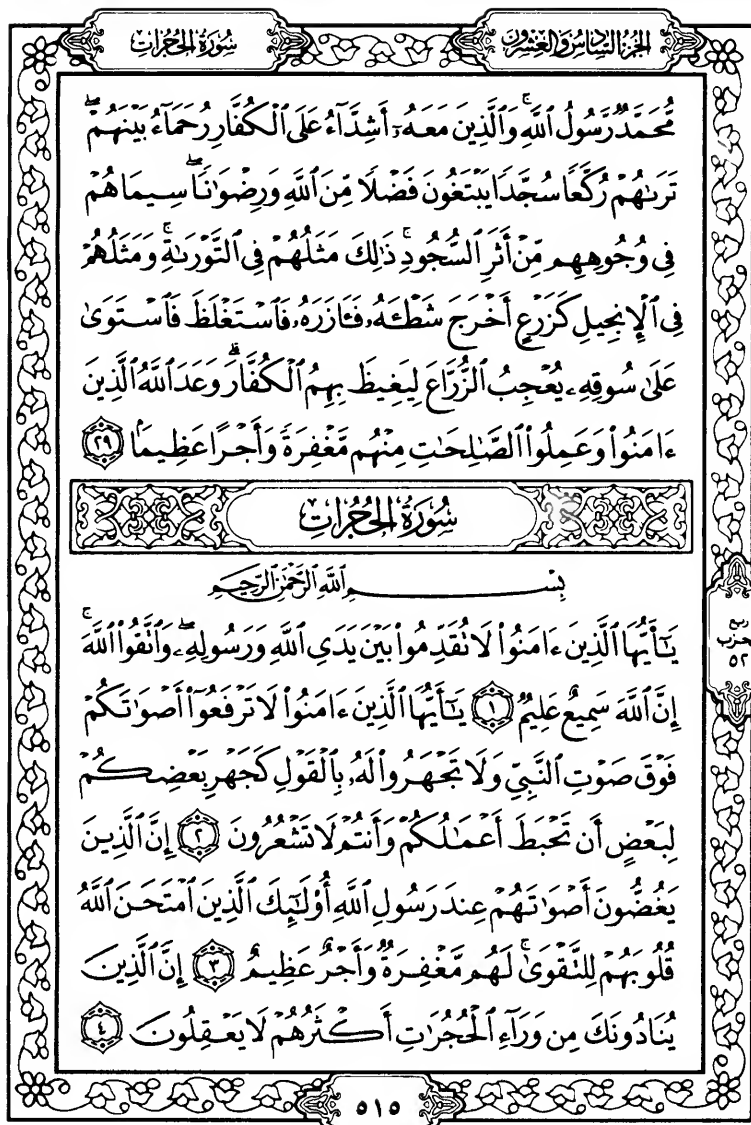 الجزء السادس والعشرون
سورة الحجرات
مُّحَمَّدٌ رَّسُولُ ٱللَّهِ ۚ وَٱلَّذِينَ مَعَهُۥٓ أَشِدَّآءُ عَلَى ٱلْكُفَّارِ رُحَمَآءُ بَيْنَهُمْ ۖ
تَرَىٰهُمْ رُكَّعًا سُجَّدًا يَبْتَغُونَ فَضْلًا مِّنَ ٱللَّهِ وَرِضْوَٰنًا ۖ سِيمَاهُمْ
فِى وُجُوهِهِم مِّنْ أَثَرِ ٱلسُّجُودِ ۚ ذَٰلِكَ مَثَلُهُمْ فِى ٱلتَّوْرَىٰةِ ۚ وَمَثَلُهُمْ
فِى ٱلْإِنجِيلِ كَزَرْعٍ أَخْرَجَ شَطْـَٔهُۥ فَـَٔازَرَهُۥ فَٱسْتَغْلَظَ فَٱسْتَوَىٰ
عَلَىٰ سُوقِهِۦ يُعْجِبُ ٱلزُّرَّاعَ لِيَغِيظَ بِهِمُ ٱلْكُفَّارَ ۗ وَعَدَ ٱللَّهُ ٱلَّذِينَ
ءَامَنُوا۟ وَعَمِلُوا۟ ٱلصَّٰلِحَٰتِ مِنْهُم مَّغْفِرَةً وَأَجْرًا عَظِيمًۢا ٢٩
سُورَةُ الحُجُرَاتِ
بِسْمِ ٱللَّهِ ٱلرَّحْمَٰنِ ٱلرَّحِيمِ
يَٰٓأَيُّهَا ٱلَّذِينَ ءَامَنُوا۟ لَا تُقَدِّمُوا۟ بَيْنَ يَدَىِ ٱللَّهِ وَرَسُولِهِۦ ۖ وَٱتَّقُوا۟ ٱللَّهَ ۚ
إِنَّ ٱللَّهَ سَمِيعٌ عَلِيمٌ ١ يَٰٓأَيُّهَا ٱلَّذِينَ ءَامَنُوا۟ لَا تَرْفَعُوٓا۟ أَصْوَٰتَكُمْ
فَوْقَ صَوْتِ ٱلنَّبِىِّ وَلَا تَجْهَرُوا۟ لَهُۥ بِٱلْقَوْلِ كَجَهْرِ بَعْضِكُمْ
لِبَعْضٍ أَن تَحْبَطَ أَعْمَٰلُكُمْ وَأَنتُمْ لَا تَشْعُرُونَ ٢ إِنَّ ٱلَّذِينَ
يَغُضُّونَ أَصْوَٰتَهُمْ عِندَ رَسُولِ ٱللَّهِ أُو۟لَٰٓئِكَ ٱلَّذِينَ ٱمْتَحَنَ ٱللَّهُ
قُلُوبَهُمْ لِلتَّقْوَىٰ ۚ لَهُم مَّغْفِرَةٌ وَأَجْرٌ عَظِيمٌ ٣ إِنَّ ٱلَّذِينَ
يُنَادُونَكَ مِن وَرَآءِ ٱلْحُجُرَٰتِ أَكْثَرُهُمْ لَا يَعْقِلُونَ ٤
ربع
حزب
٥٢
٥١٥